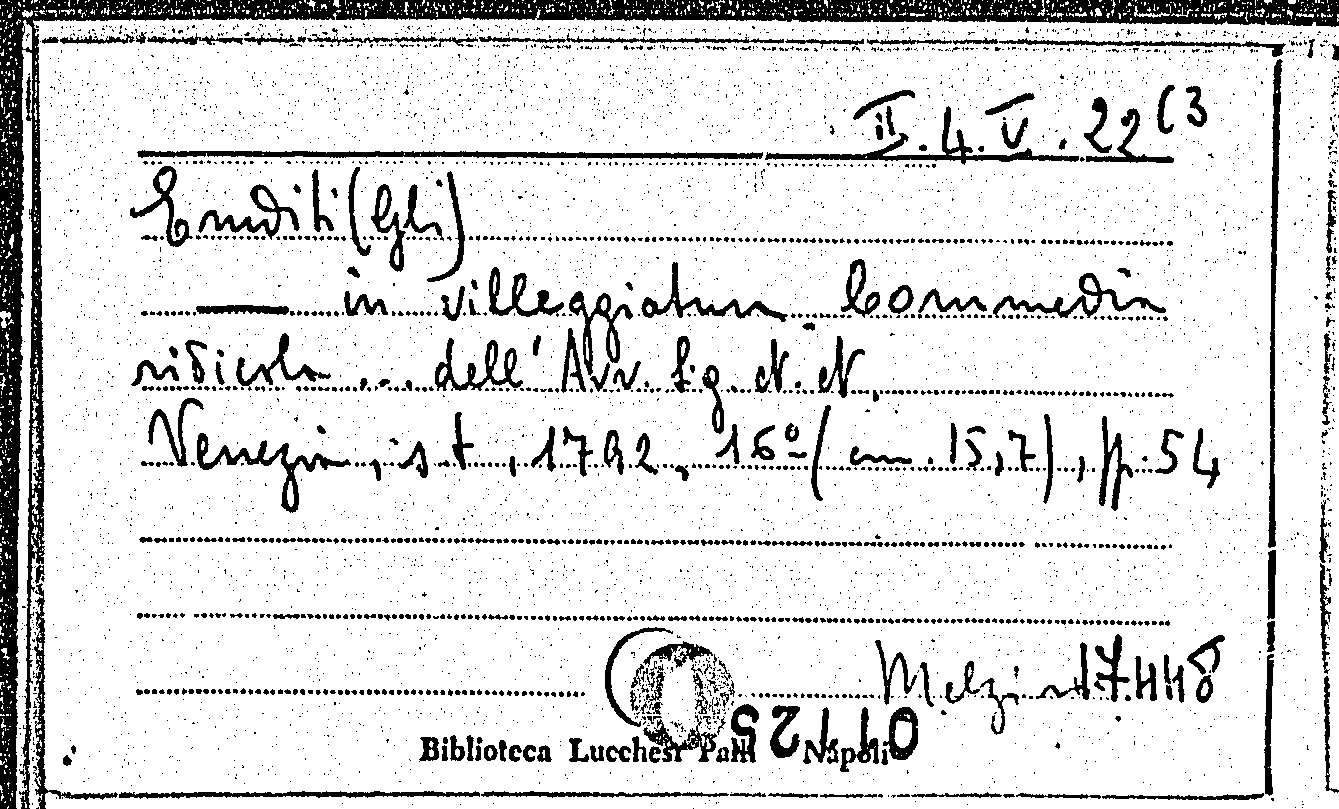 II.4.V.22(3
Eruditi (Gli)
—— in villeggiatura. Commedia
ridicola ... dell'Avv. Sig. N. N.
Venezia, s t, 1792, 16º (cm. 15,7), pp. 54
Melzi 17448
Biblioteca Lucchesi Palli Napoli